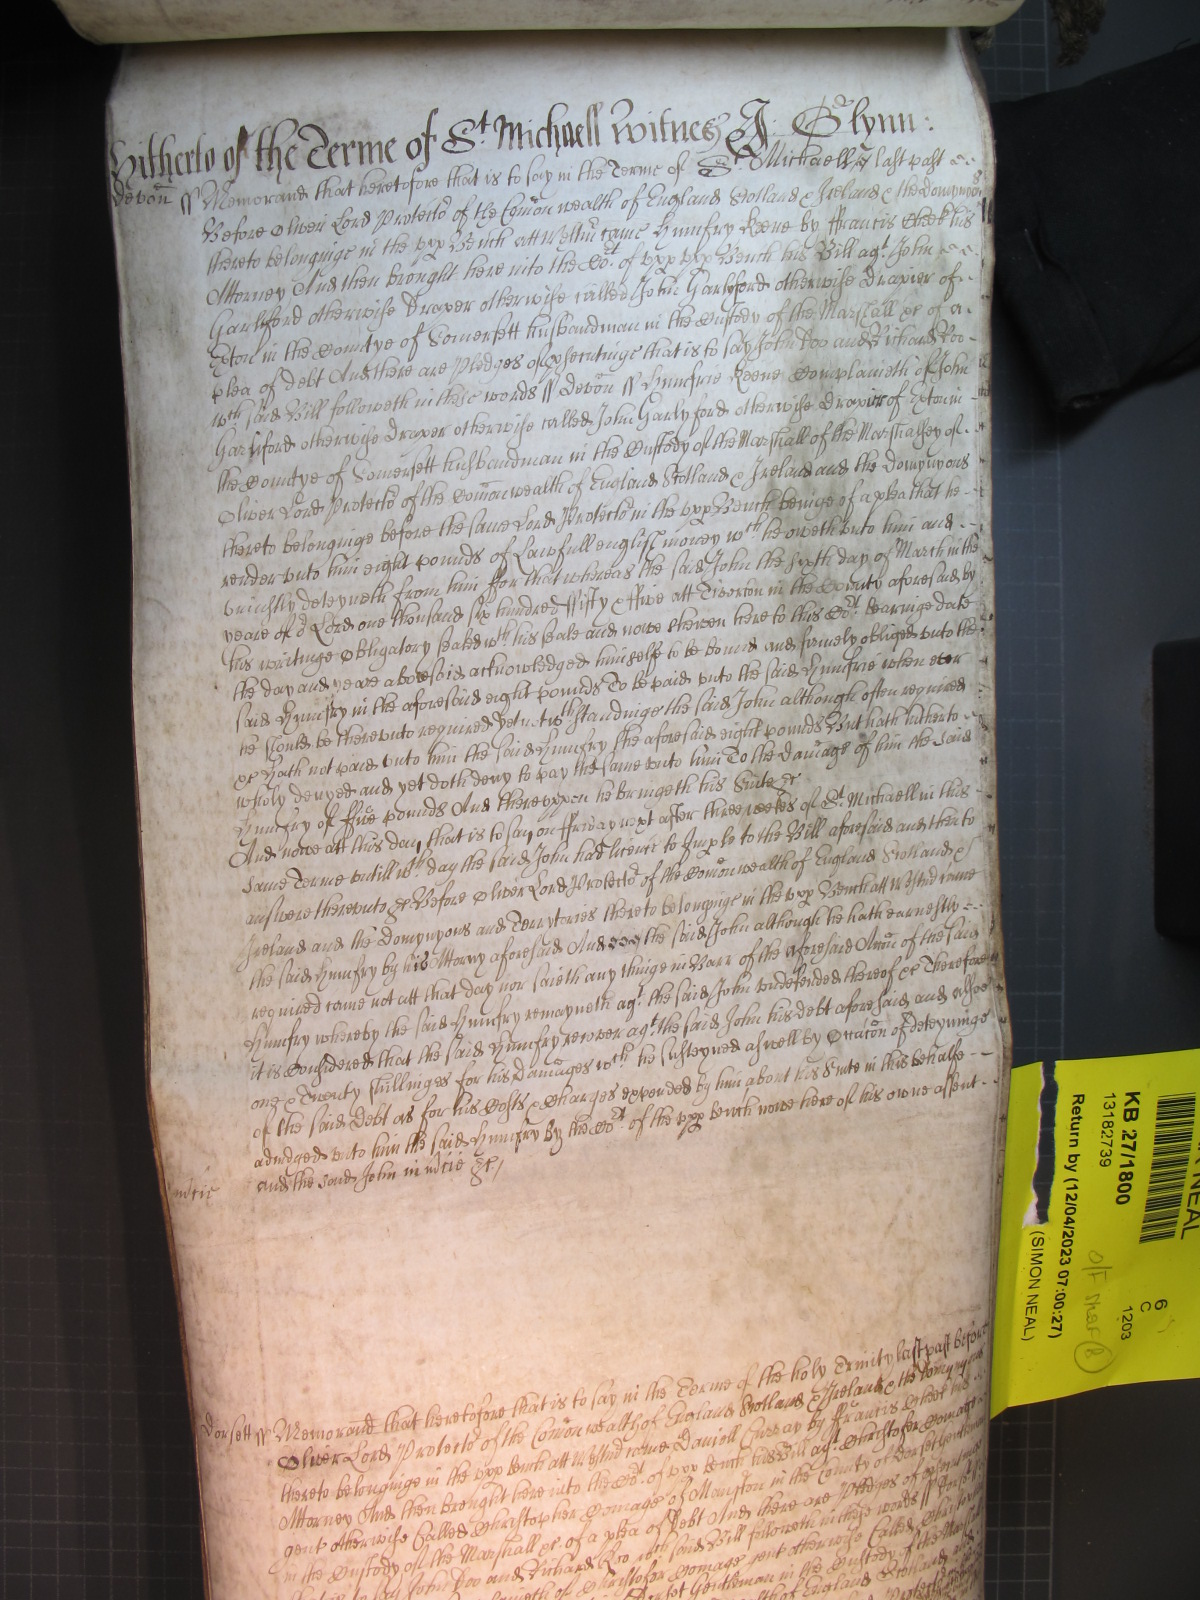 Hitherto of the Terme of St Michaell Witnes J: Glynn:
Devon ss Memorand that heretofore that is to say in the Terme of St Michaell last past
Before Oliver Lord Protector of the Comon wealth of England Scotland & Ireland & the Domynions
thereto belonginge in the upp Bench att Westm came Humfry Keene by ffrancis Cheeke his
Attorney And then brought here into the Cort of upp Bench his Bill agt John
Garlyford otherwise Draper otherwise called John Garlyford otherwise Drapier of
Exton in the Countye of Somersett husbandman in the Custody of the Marshall &c of a
plea of debt And there are Pledges of prosecutinge that is to say John Doo and Richard Roo
wch said Bill followeth in these words ss Devon ss Humfrie Keene Complaineth of John
Garliford otherwise Draper otherwise called John Garlyford otherwise Drapier of Exton in
the Countye of Somersett husbandman in the Custody of the Marshall of the Marshalsey of
Oliver Lord Protector of the Comon wealth of England Scotland & Ireland and the Domynyons
thereto belonginge before the same Lord Protector in the upp Bench beinge of a plea that he
render unto him eight pounds of Lawfull english money wch he oweth unto him and
uniustly deteyneth from him ffor that whereas the said John the sixth day of March in the
yeare of or Lord one thousand six hundred ffifty & ffive att Tiverton in the County aforesaid by
his writinge Obligatory sealed wth his seale and nowe shewen here to this Cort bearinge date
the day and yeare abovesaid acknowledged himselfe to be bound and firmely obliged unto the
said Humfry in the aforesaid eight pounds To be paid unto the said Humfrie when ever
he should be thereunto required yet notwthstandinge the said John although often required
&c Hath not paid unto him the said Humfry the aforesaid eight pounds But hath hitherto
wholy denyed and yet doth deny to pay the same unto him To the Damage of him the said
Humfry of ffive pounds And thereuppon he bringeth his Suite &c
And nowe att this day that is to say on ffriday next after three weekes of St Michaell in this
same Terme untill wch day the said John had licence to Imple to the Bill aforesaid and then to
answere thereunto &c Before Oliver Lord Protector of the Comon wealth of England Scotland &
Ireland and the Domynyons and Terrytories thereto belonginge in the upp Bench att Westmr came
the said Humfry by his Attorny aforesaid And the said John although he hath earnestly
required came not att that day nor saieth any thinge in Barr of the aforesaid Accon of the said
Humfry whereby the said Humfry remayneth agt the said John undefended thereof &c Therefore
it is Considered that the said Humfry recover agt the said John his debt aforesaid and alsoe
one & Twenty shillinges for his Damages wch he susteyned aswell by Occacon of deteyninge
of the said Debt as for his Costs & Charges expended by him about his Suite in this behalfe
adiudged unto him the said Humfry by the Cort of the upp Bench nowe here of his owne assent
and the said John in mcie &c
mcie
Dorsett ss Memorand that heretofore that is to say in the Terme of the holy Trinity last past before
Oliver Lord Protector of the Comon wealth of England Scotland & Ireland & the Domynyons
thereto belonginge in the upp Bench att Westmr came Daniell by ffrancis Cheeke his
Attorney And then brought here into the Cort of upp Bench his Bill agt Christofer Gomage
gent otherwise Called Christopher Gomage of Manston in the County of Dorsett gentleman
in the Custody of the Marshall &c of a plea of Debt And there are Pledges of prosecutinge
that is to say John Doo and Richard Roo wch said Bill followeth in these words ss Dorsett ss
Complaineth of Christofer Gomage gent otherwise Called
Dorset Gentleman in the Custody of the Marshall
wealth of England Scotland and
KB 27/1800
13182739
Return by (12/04/2023 07:00:27)
(SIMON NEAL)
NEAL
6
C
1203